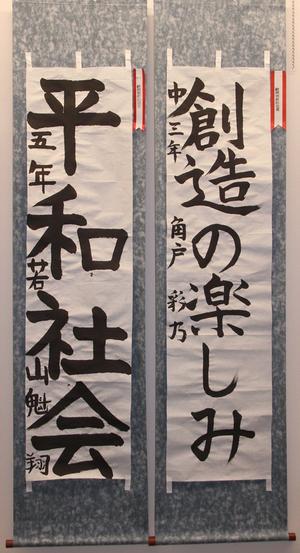 創造の楽しみ
中三年 角戸 彩乃
平和社会
五年 若山魁翔